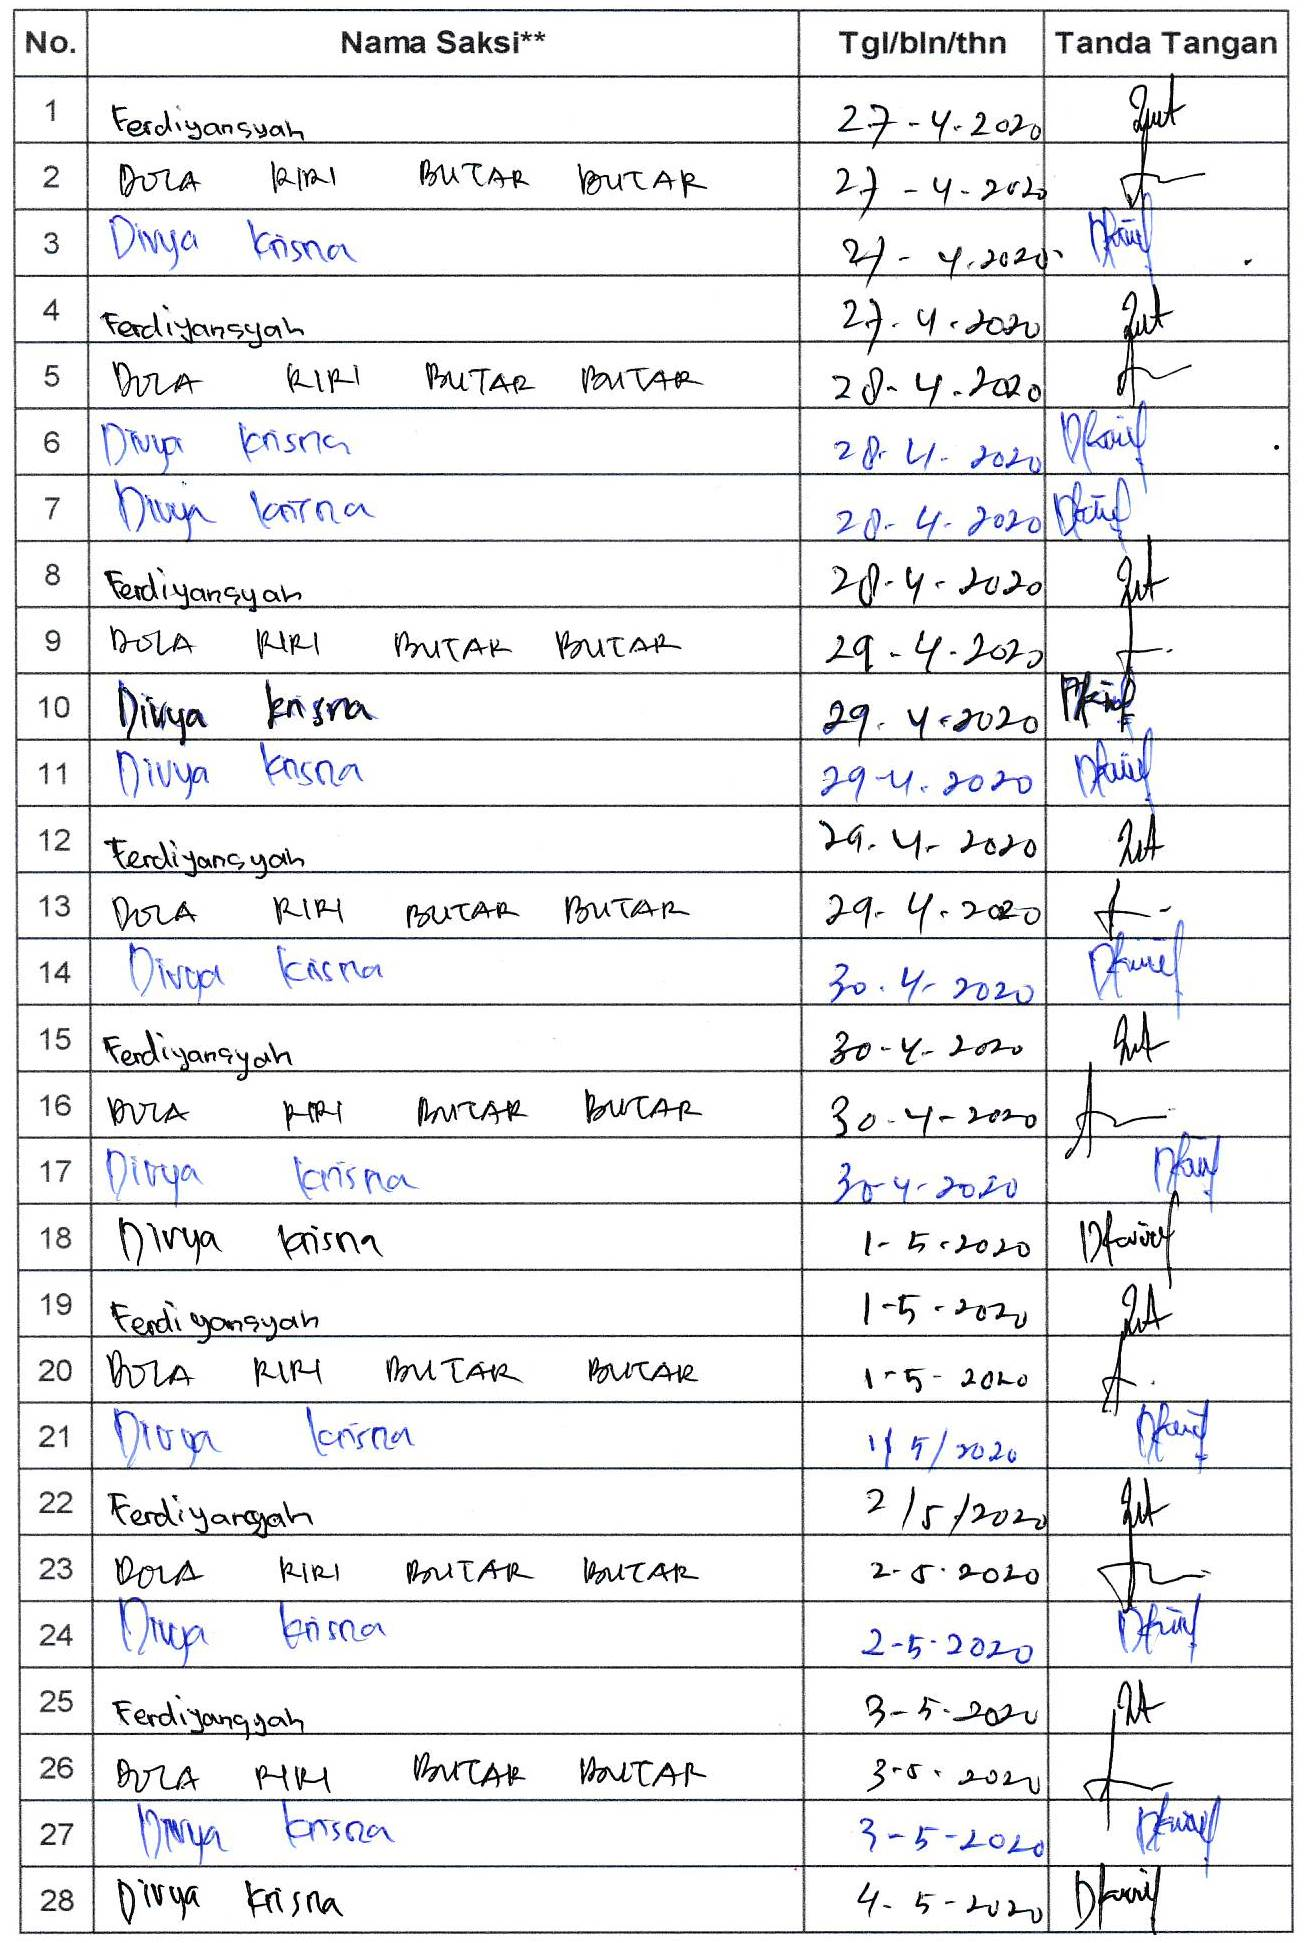 No. Nama Saksi** Tgl/bln/thn Tanda Tangan
1 Ferdiyansyah 27-4-2020
2 DOLA RIRI BUTAR BUTAR 27-4-2020
3 Divya krisna 27-4.2020
4 Ferdiyansyah 27.4.2020
5 DOLA RIRI BUTAR BUTAR 28-4.2020
6 Divya krisna 28.4.2020
7 Divya krisna 28-4-2020
8 Ferdiyansyah 28-4-2020
9 DOLA RIRI BUTAR BUTAR 29-4-2020
10 Divya krisna 29.4.2020
11 Divya krisna 29-4.2020
12 Ferdiyansyah 29.4-2020
13 DOLA RIRI BUTAR BUTAR 29-4.2020
14 Divya krisna 30.4-2020
15 Ferdiyansyah 30-4-2020
16 DOLA RIRI BUTAR BUTAR 30-4-2020
17 Divya krisna 30-4-2020
18 Divya krisna 1-5-2020
19 Ferdiyansyah 1-5-2020
20 DOLA RIRI BUTAR BUTAR 1-5-2020
21 Divya krisna 1/5/2020
22 Ferdiyansyah 2/5/2020
23 DOLA RIRI BUTAR BUTAR 2-5-2020
24 Divya krisna 2-5-2020
25 Ferdiyansyah 3-5-2020
26 DOLA RIRI BUTAR BUTAR 3-5-2020
27 Divya krisna 3-5-2020
28 Divya krisna 4-5-2020